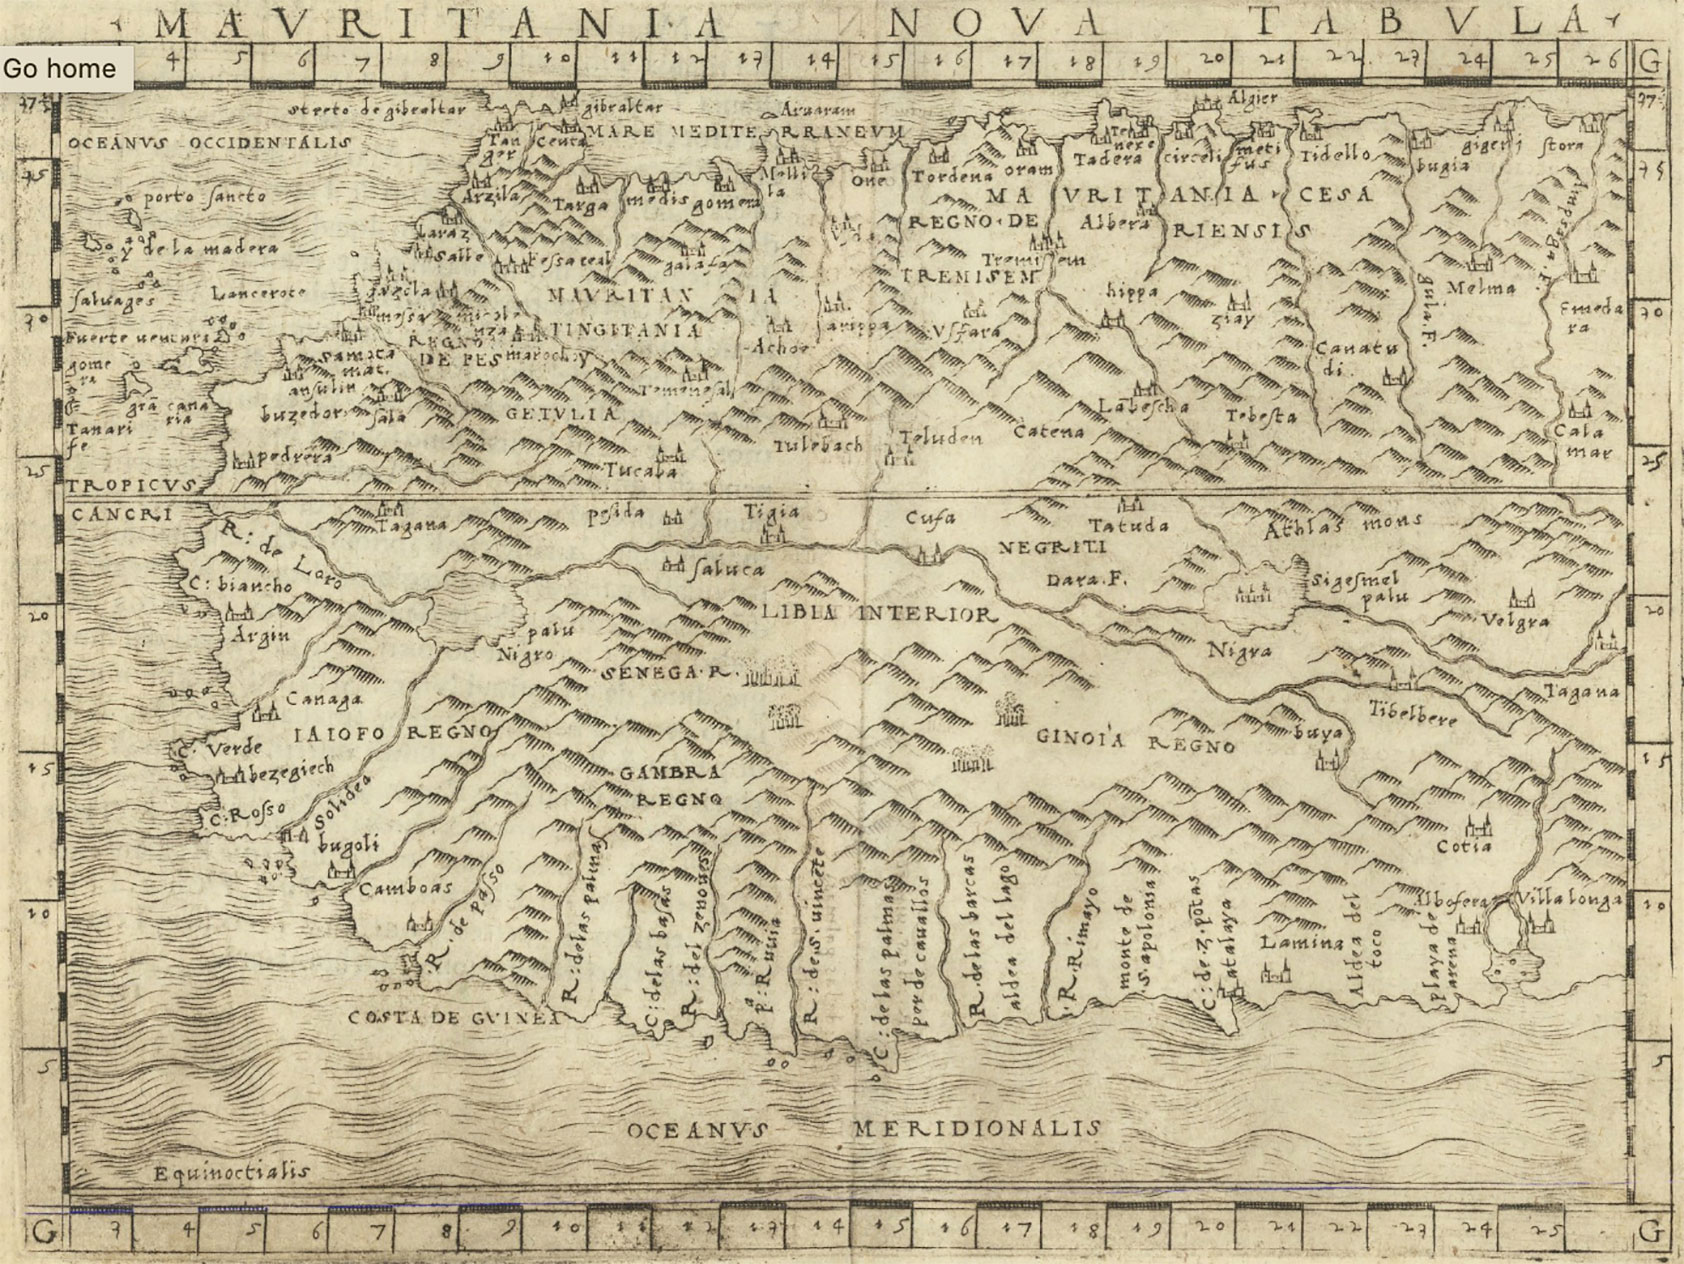 MAVRITANIA NOVA TABVLA
Go home
4 5 6 7 8 9 10 11 12 13 14 15 16 17 18 19 20 21 22 23 24 25 26 G
Streto de gibeltar
gibraltar
Algier
OCEANVS OCCIDENTALIS
MARE MEDITERRANEVM
Tanger
Ceuta
Melli
la
One
Tordena
oram
Tadera
circeli
metifus
Tidello
bugia
gigeri
stora
35
porto sancto
Arzila
Targa
medis
gomera
MAVRITANIA CESA
RIENSIS
REGNO DE
TREMISEM
Albera
Tremissem
y de la madera
Laraz
Salle
Fessa real
galafa
Melma
saluages
Lancerote
MAVRITANIA
TINGITANIA
hippa
ziay
guia.F.
Emeda
ra
30
Fuerte ventura
REGNO
DE FES
maroch
Achoe
sarippa
Vsfara
Canatu
di
gome
ra
gra cana
ria
Tanari
fe
ansulin
buzedor
sala
GETVLIA
Temenesal
Labescha
Tebesta
Catena
Teluden
Tulebach
Cala
mar
25
pedrera
Tucaba
TROPICVS
CANCRI
Tagana
pesida
Tigia
Cufa
NEGRITI
Tatuda
Athlas mons
R: de Loro
C: biancho
saluca
Dara.F.
Sigesmel
palu
20
Argin
LIBIA INTERIOR
Velgra
palu
Nigro
SENEGA.R.
Nigra
Canaga
Tagana
Tibelbere
C. Verde
IAIOFO REGNO
GINOIA REGNO
buya
15
bezegiech
GAMBRA
REGNO
C: Rosso
Solidea
bugoli
Cotia
Camboas
Albofera
Villa longa
10
R. de Passo
R: delas palmas
C: delas basas
R: del zenoues
R: de.s.vincete
C: de las palmas
por de cauallos
R. delas barcas
aldea del lago
R. Rimayo
monte de
s.apolonia
C: de.z.potas
atalaya
Lamina
Aldea del
toco
playa de
arena
COSTA DE GVINEA
5
OCEANVS MERIDIONALIS
Equinoctialis
G 3 4 5 6 7 8 9 10 11 12 13 14 15 16 17 18 19 20 21 22 23 24 25 G